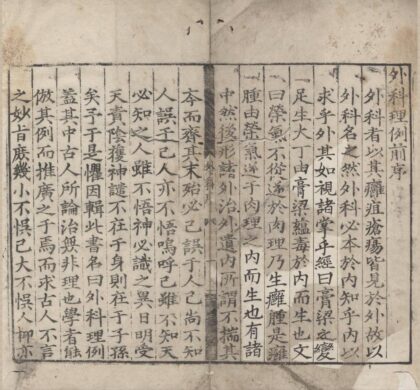 外科理例前序
外科者以其癰疽瘡瘍皆見於外故以
外科名之然外科必本於内知乎内以
求乎外其如視諸掌乎經曰膏梁之變
足生大丁由膏梁蘊毒於内而生也又
曰榮氣不從逆於肉理乃生癰腫是癰
腫由榮氣逆于肉理之内而生也有諸
中然後形諸外治外遺内所謂不揣其
夲而齊其末殆必己誤于人己尚不知
人誤于己人亦不悟嗚呼己雖不知天
必知之人雖不悟神必識之異日明受
天責陰獲神譴不在于身則在于子孫
矣予于是懼因輯此書名曰外科理例
蓋其中古人所論治無非理也學者能
倣其例而推廣之于焉而求古人不言
之妙旨庶幾小不悞己大不悞人抑亦